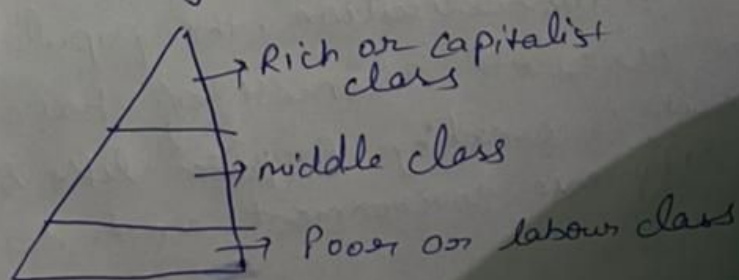 Rich or capitalist
class
middle class
Poor or labour class